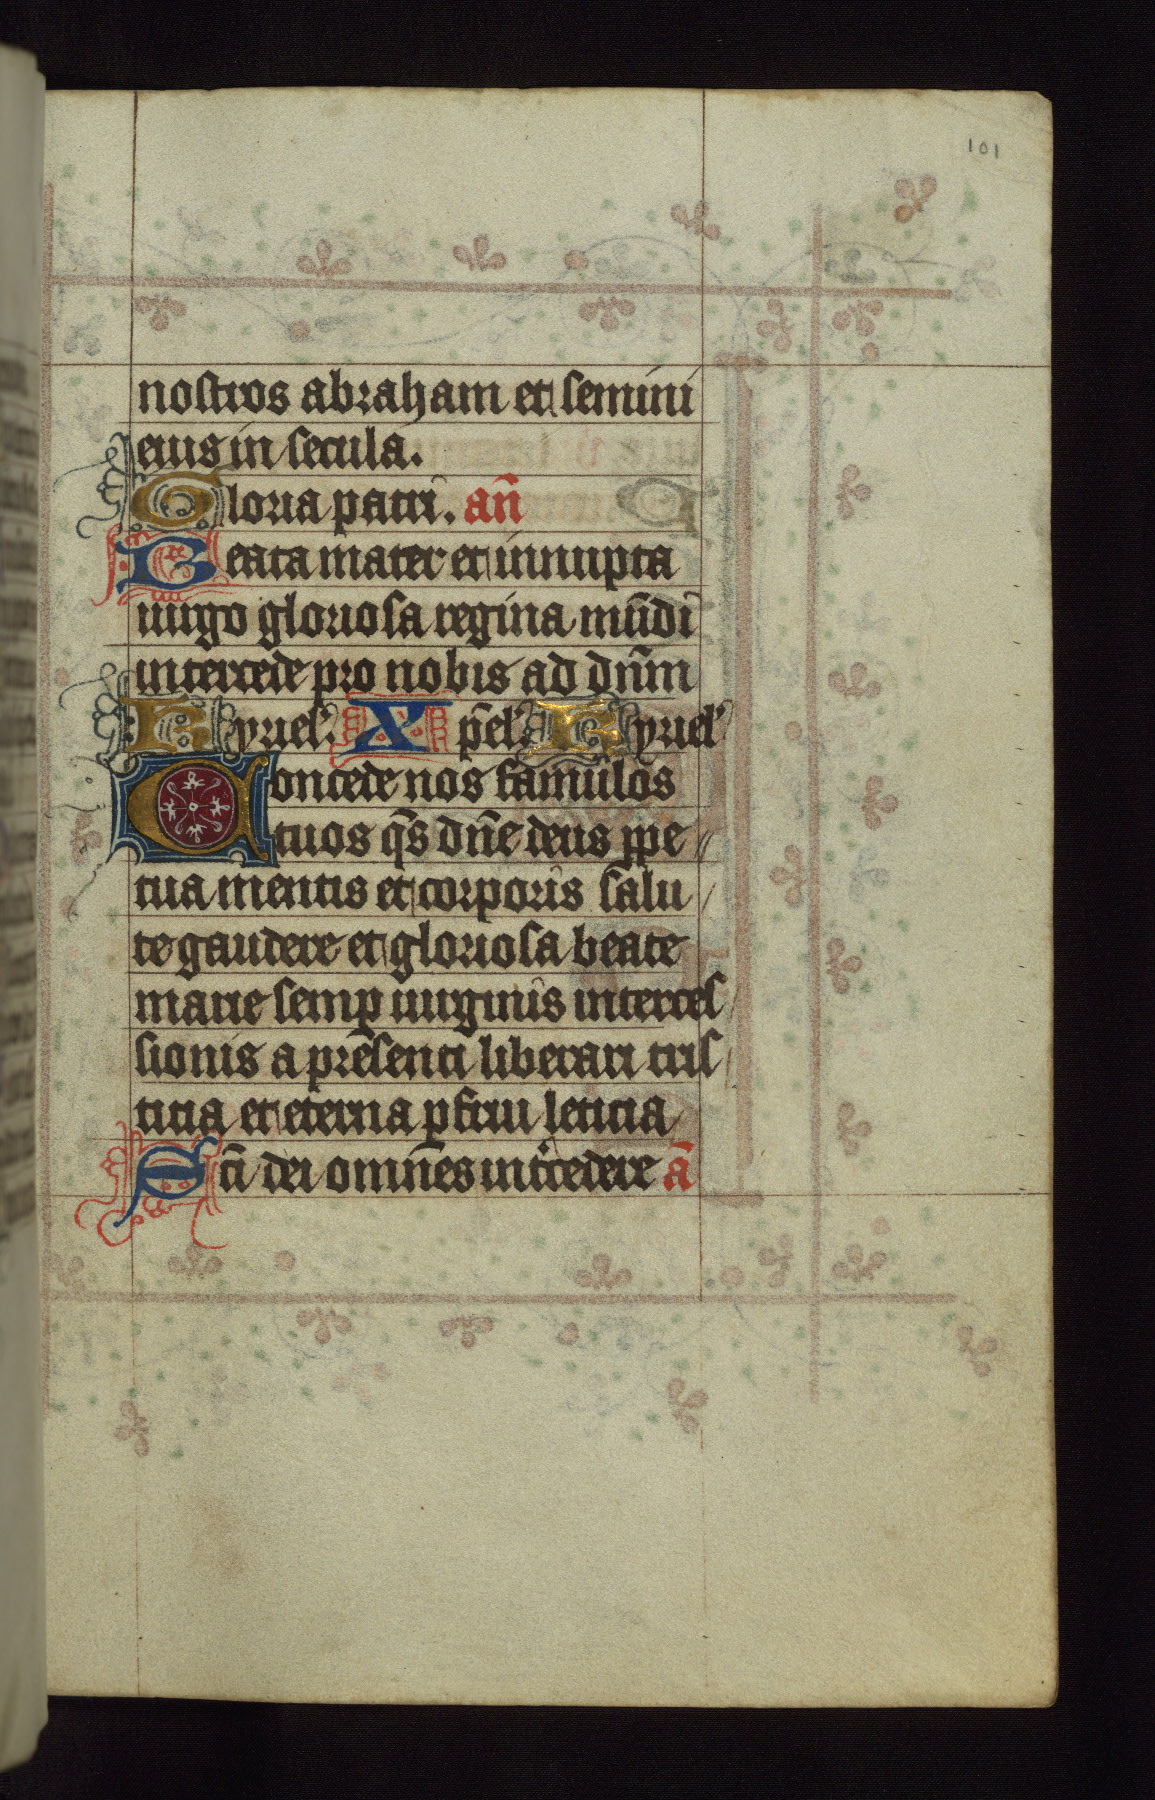 101
nostros abraham et semini
eius in secula.
Gloria patri. añ
Beata mater et innupta
uirgo gloriosa regina mũdi
intercede pro nobis ad dñm
Kyriel'. Xp̄el'. Kyriel'
Concede nos famulos
tuos q̄s dñe deus ꝑpe
tua mentis et corporis salu
te gaudere et gloriosa beate
marie semꝑ uirginis interces
sionis a pr̄esenti liberari tris
ticia et eterna ꝑfrui leticia
Sc̄i dei omñes int̾cedere ā